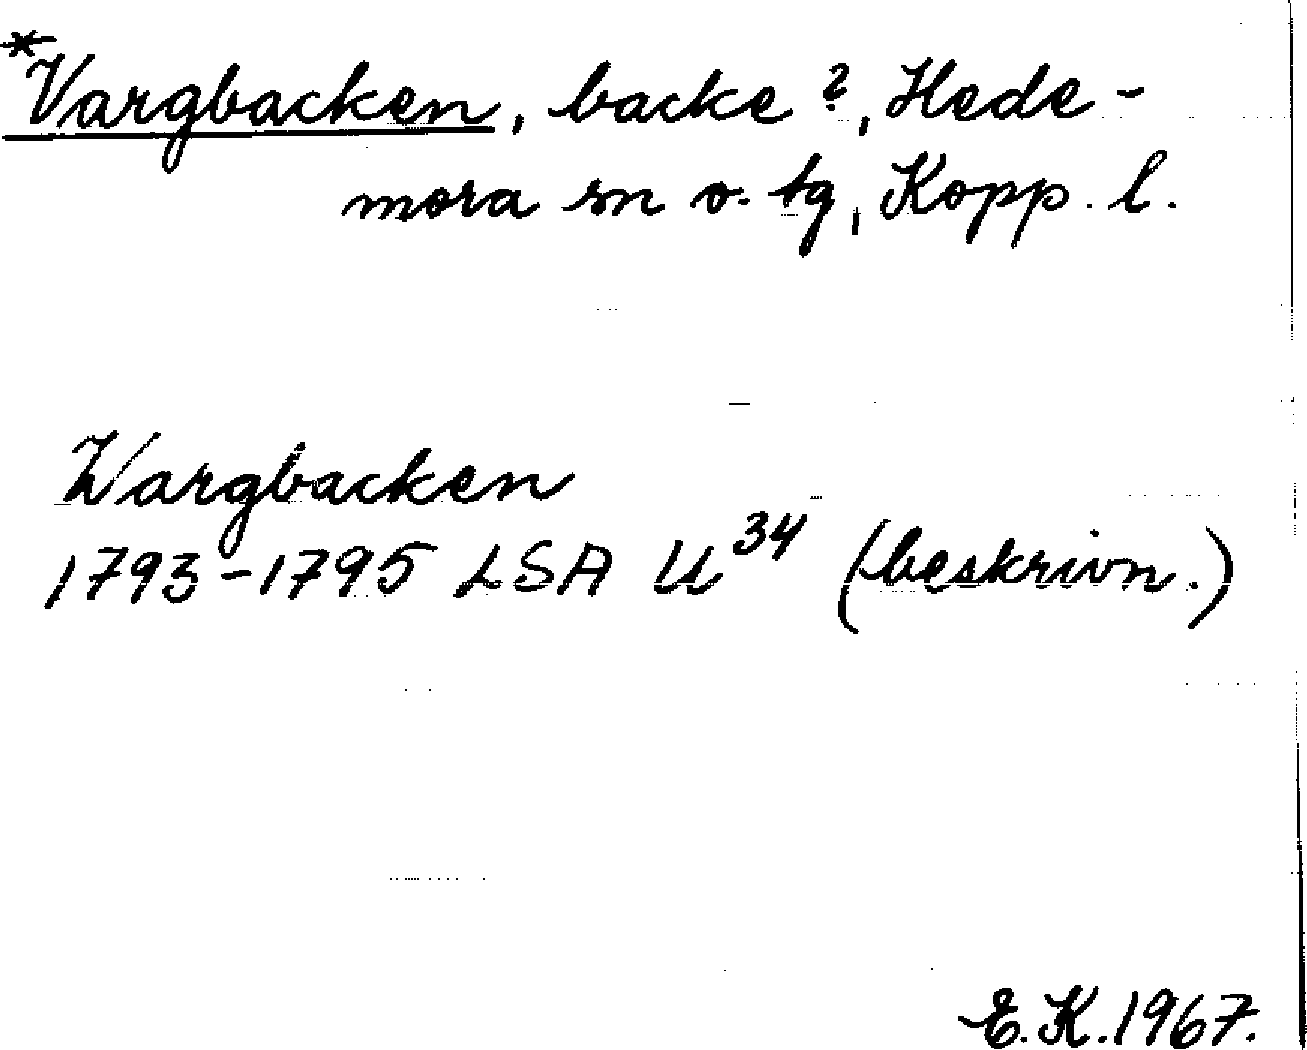 *Vargbacken, backe ?, Hede-
mora sn o. tg, Kopp. l.
Wargbacken
1793-1795 LSA U34 (beskrivn.)
E.K.1967.